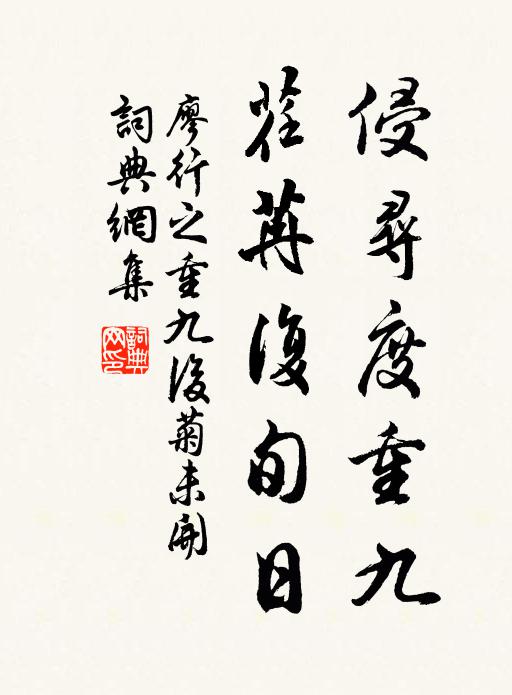 侵尋度重九
荏苒復旬日
廖行之重九後菊未開
詞典網集
詞典網印